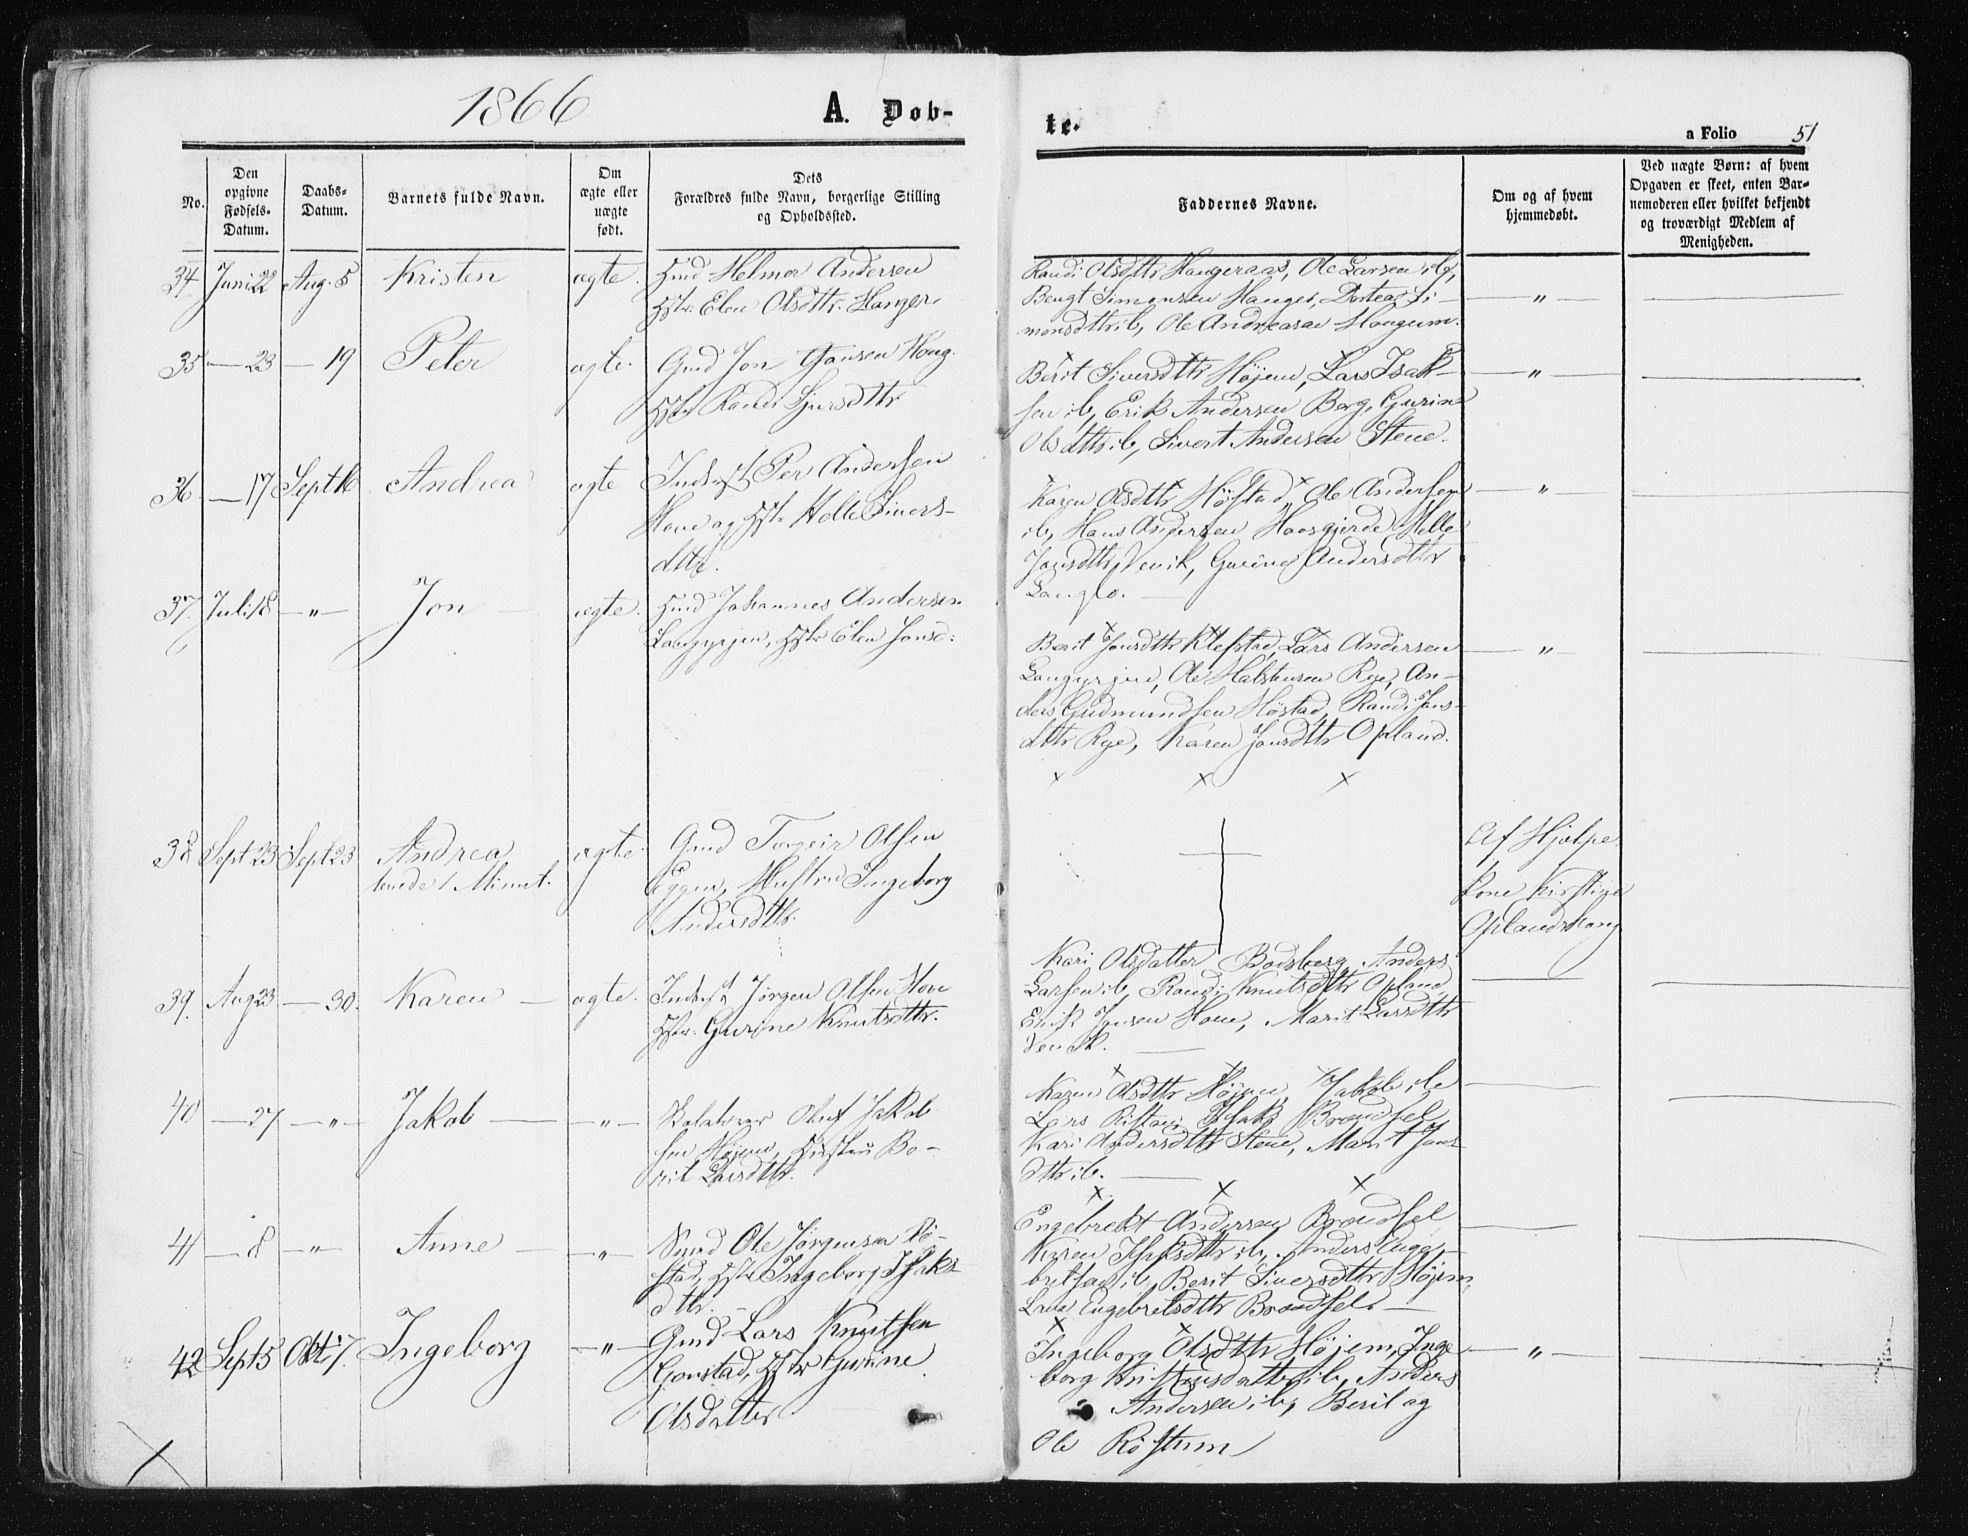 1866
A. Døb-
te.
a Folio 51
No.
Den opgivne Fødsels-Datum.
Daabs-Datum.
Barnets fulde Navn.
Om ægte eller uægte født.
Dets Forældres fulde Navn, borgerlige Stilling og Opholdssted.
Faddernes Navne.
Om og af hvem hjemmedøbt.
Ved uægte Børn: af hvem Opgaven er skeet, enten Barnemoderen eller hvilket bekjendt og troværdigt Medlem af Menigheden.
34 Juni 22 Aug. 5 Kristen ægte.
Helmer Andersen
Hstr. Elen Olsdtr. Hanger.
Randi Olsdttr Haugeraas, Ole Larsen ib,
Bengt Simonsen Hanger, Dortea Si-
monsdttr ib, Ole Andreasen Haugum.
"
35 — 23 — 19 Peter ægte.
Gmd Jon Hansen Haug.
Hstr Randi Sjursdttr
Berit Siversdttr Højem, Lars Isak-
sen ib, Erik Andersen Berg, Gurine
Olsdttr ib, Sivert Andersen Stene.
"
36 — 17 Sept 16 Andrea ægte
Inderst Per Andersen
Hove og Hstr Helle Sivers-
dttr.
Karen Olsdttr Høstad, Ole Andersen
ib, Hans Andersen Haasgjerde, Helle
Jonsdttr Venik, Gurine Andersdttr
Langlo.
"
37. Juli 18 — " — Jon ægte.
Hmd Johannes Andersen
Langyrjen, Hstr Elen Jonsd:
Berit Jonsdttr Klefstad, Lars Andersen
Langyrjen, Ole Halstensen Rye, An-
ders Gudmundsen Høstad, Randi Jons-
dttr Rye, Karen Jonsdttr Opland.
"
38 Sept 23 Sept 23 Andrea ægte.
levede 1 Minut.
Gmd Torgeir Olsen
Eggen, Hustru Ingeborg
Andersdttr.
Af Hjælpe
kone Kirstine
Oplandshaug
39. Aug 23 — 30. Karen — ægte.
Inderst Jørgen Olsen Hove
Hstr. Gurine Knutsdttr.
Kari Olsdatter Bodsberg, Anders
Larsen ib, Randi Knutsdttr Opland,
Erik Jonsen Hove, Marit Larsdttr
Venik.
40 — 27 — " — Jakob — " —
Oluf Jakob-
sen Højem, Hustru Be-
rit Larsdttr.
Karen Olsdttr Højem, Jakob ib
Lars Isak Brændsel
Kari Andersdttr Stene, Marit Jons-
dttr ib.
41 — 8 — " — Anne — " —
Ole Jørgensen Rø-
stad, Hstr Ingeborg Isaks-
dttr.
Engebrekt Andersen Brændsel
Karen Isaksdttr ib, Anders Enge-
bretsen ib, Berit Siversdttr Højem,
Engebretsdttr Brændsel.
42 Sept 5 Okt 7. Ingeborg — " —
Gmd Lars Knutsen
Gonstad, Hstr Gurine
Olsdatter.
Ingeborg Olsdttr Højem, Inge
borg Kristensdatter ib, Anders
Andersen ib, Berit og
Ole Røstum
"